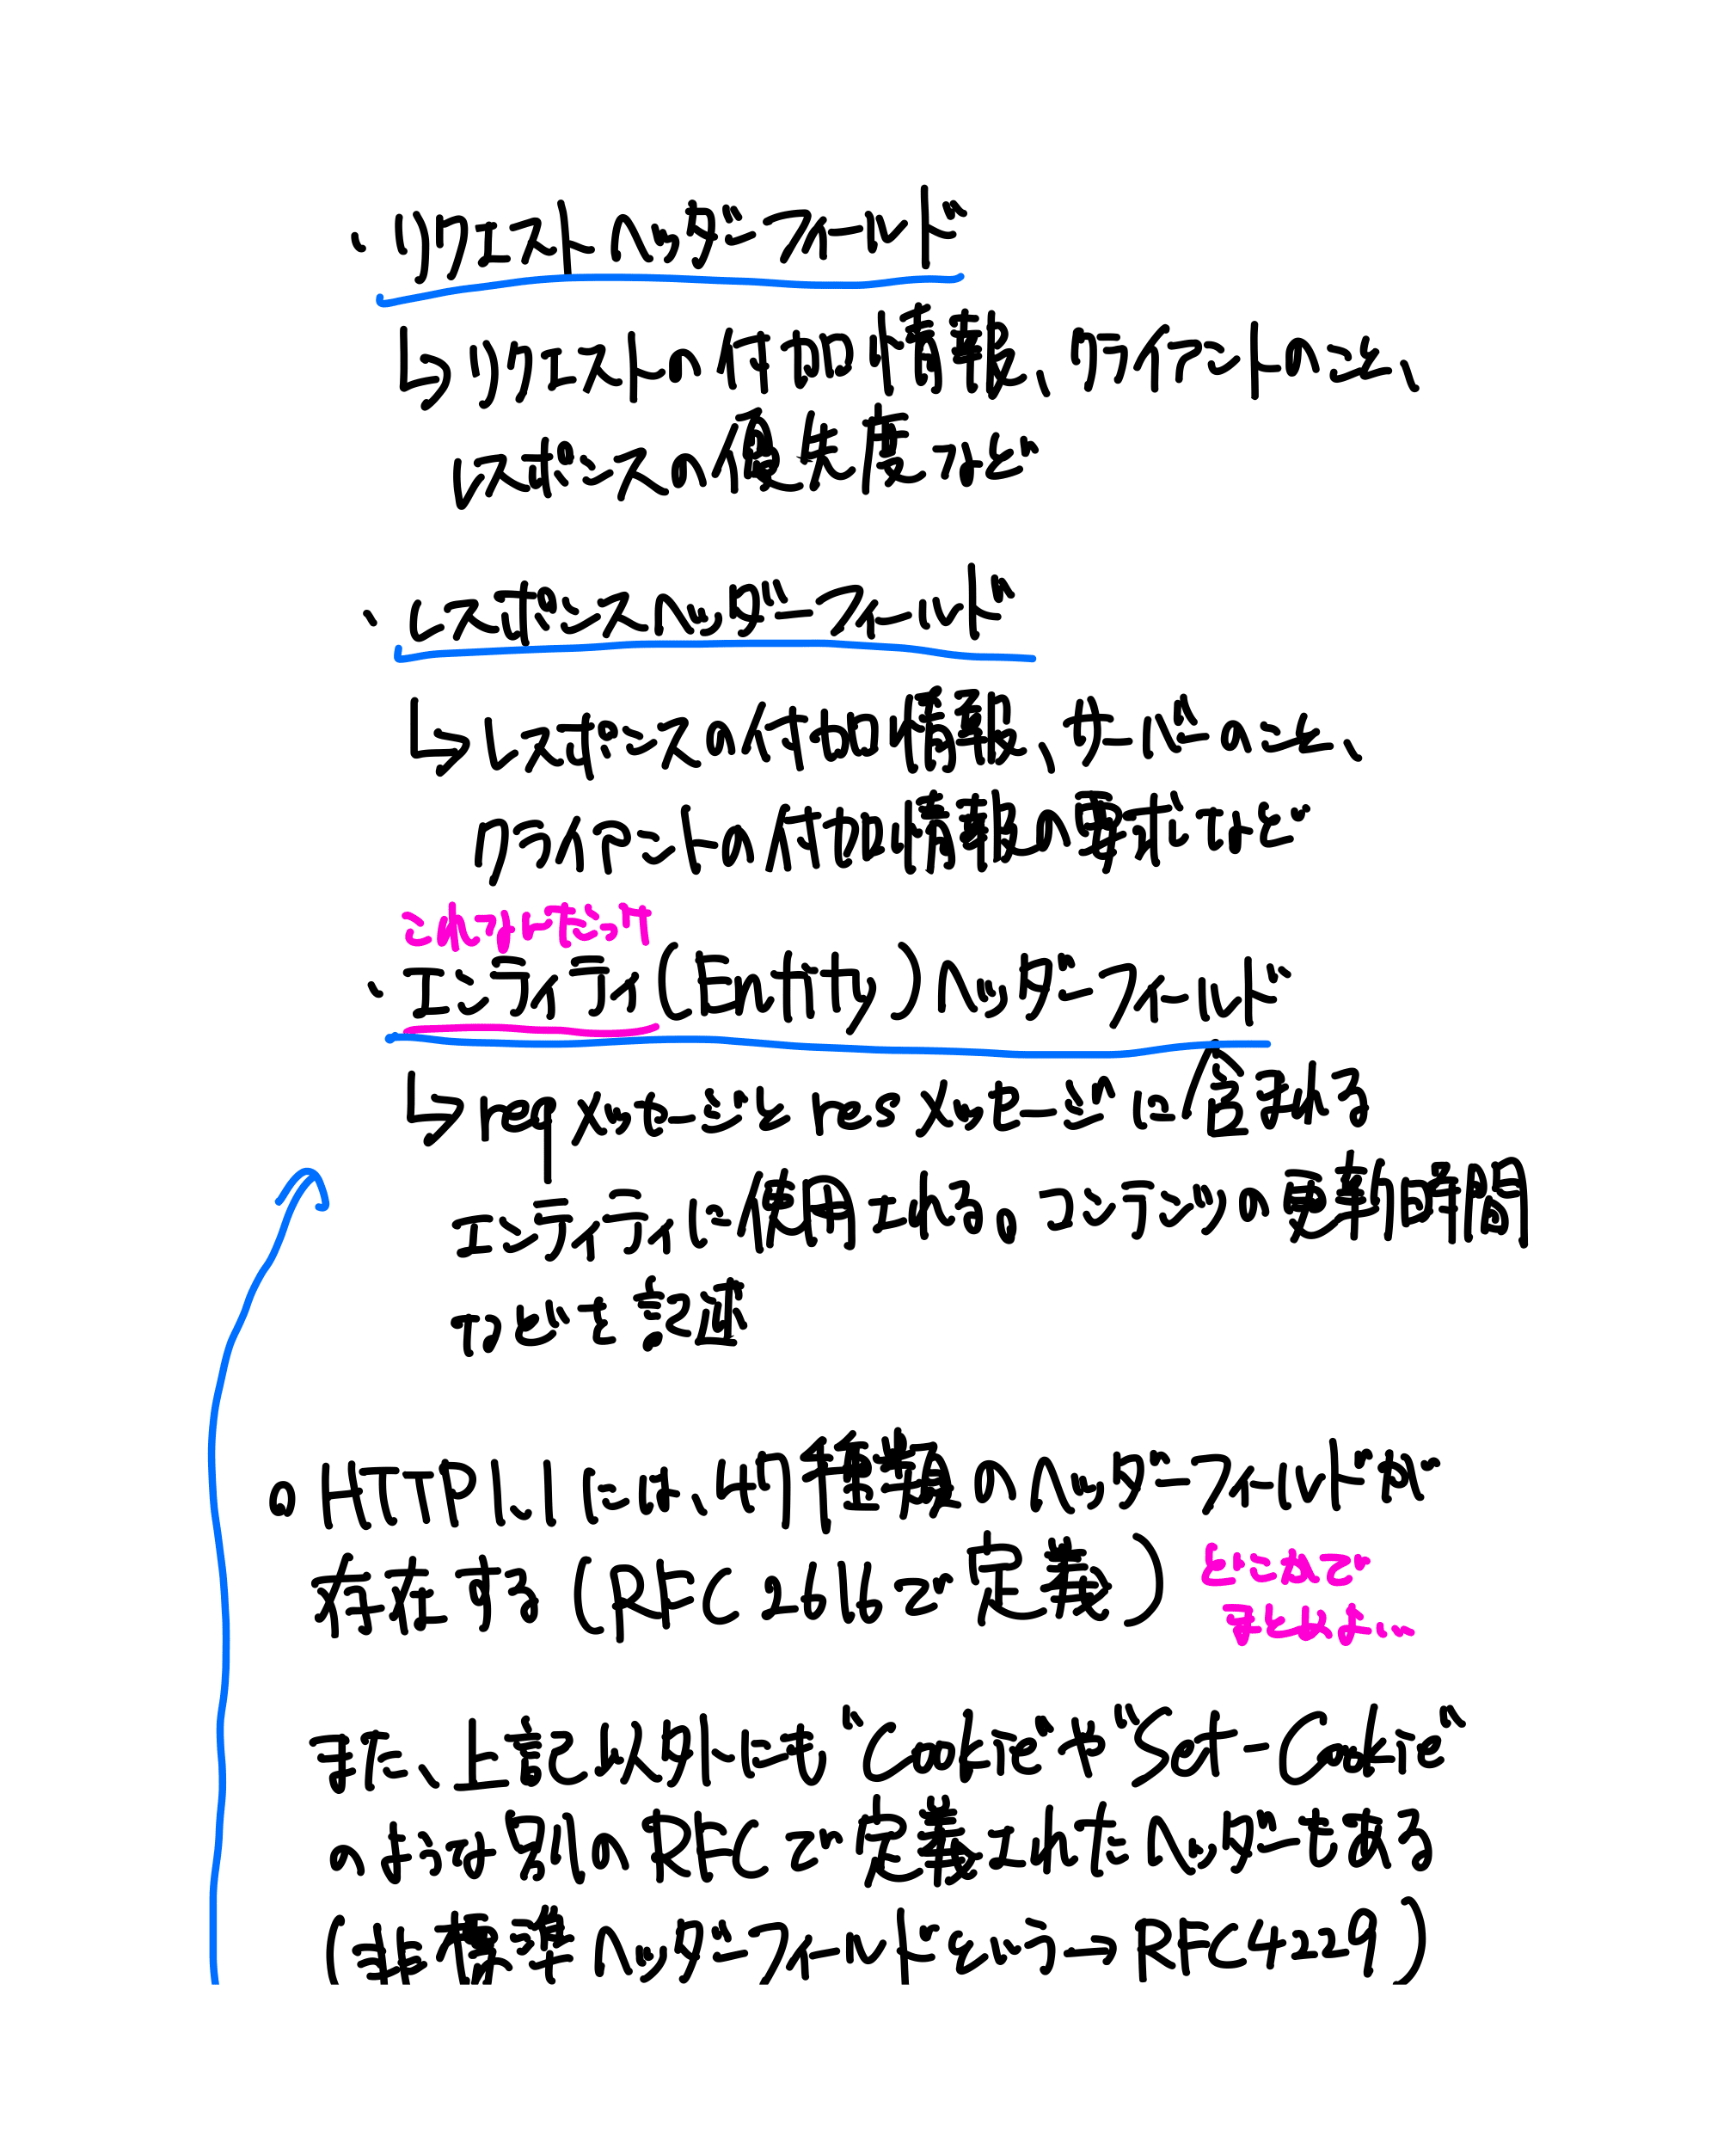 ・リクエストヘッダーフィールド
↳リクエストの付加情報、クライアントのこと、
レスポンスの優先度など
・レスポンスヘッダーフィールド
↳レスポンスの付加情報、サーバーのこと、
クライアントの付加情報の要求など
・エンティティ(Entity)ヘッダーフィールド
↳reqメッセージとresメッセージに含まれる
エンティティに使用される。コンテンツの更新時間
などを記述
○HTTP1.1には、47種類のヘッダーフィールドが
存在する(RFC2616で定義)
どこかで
まとめよ…
また、上記以外にも"Cookie"や"Set-Cookie"
のような別のRFCで定義されたヘッダーもある
(非標準ヘッダーフィールドという→RFC4229)